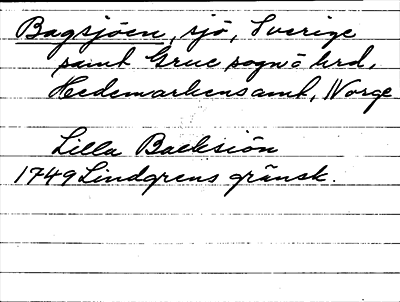 Bagsjöen, sjö, Sverige
samt Grue sogn å hrd,
Hedemarkens amt, Norge
Lilla Backsiön
1749 Lindgrens gränsk.